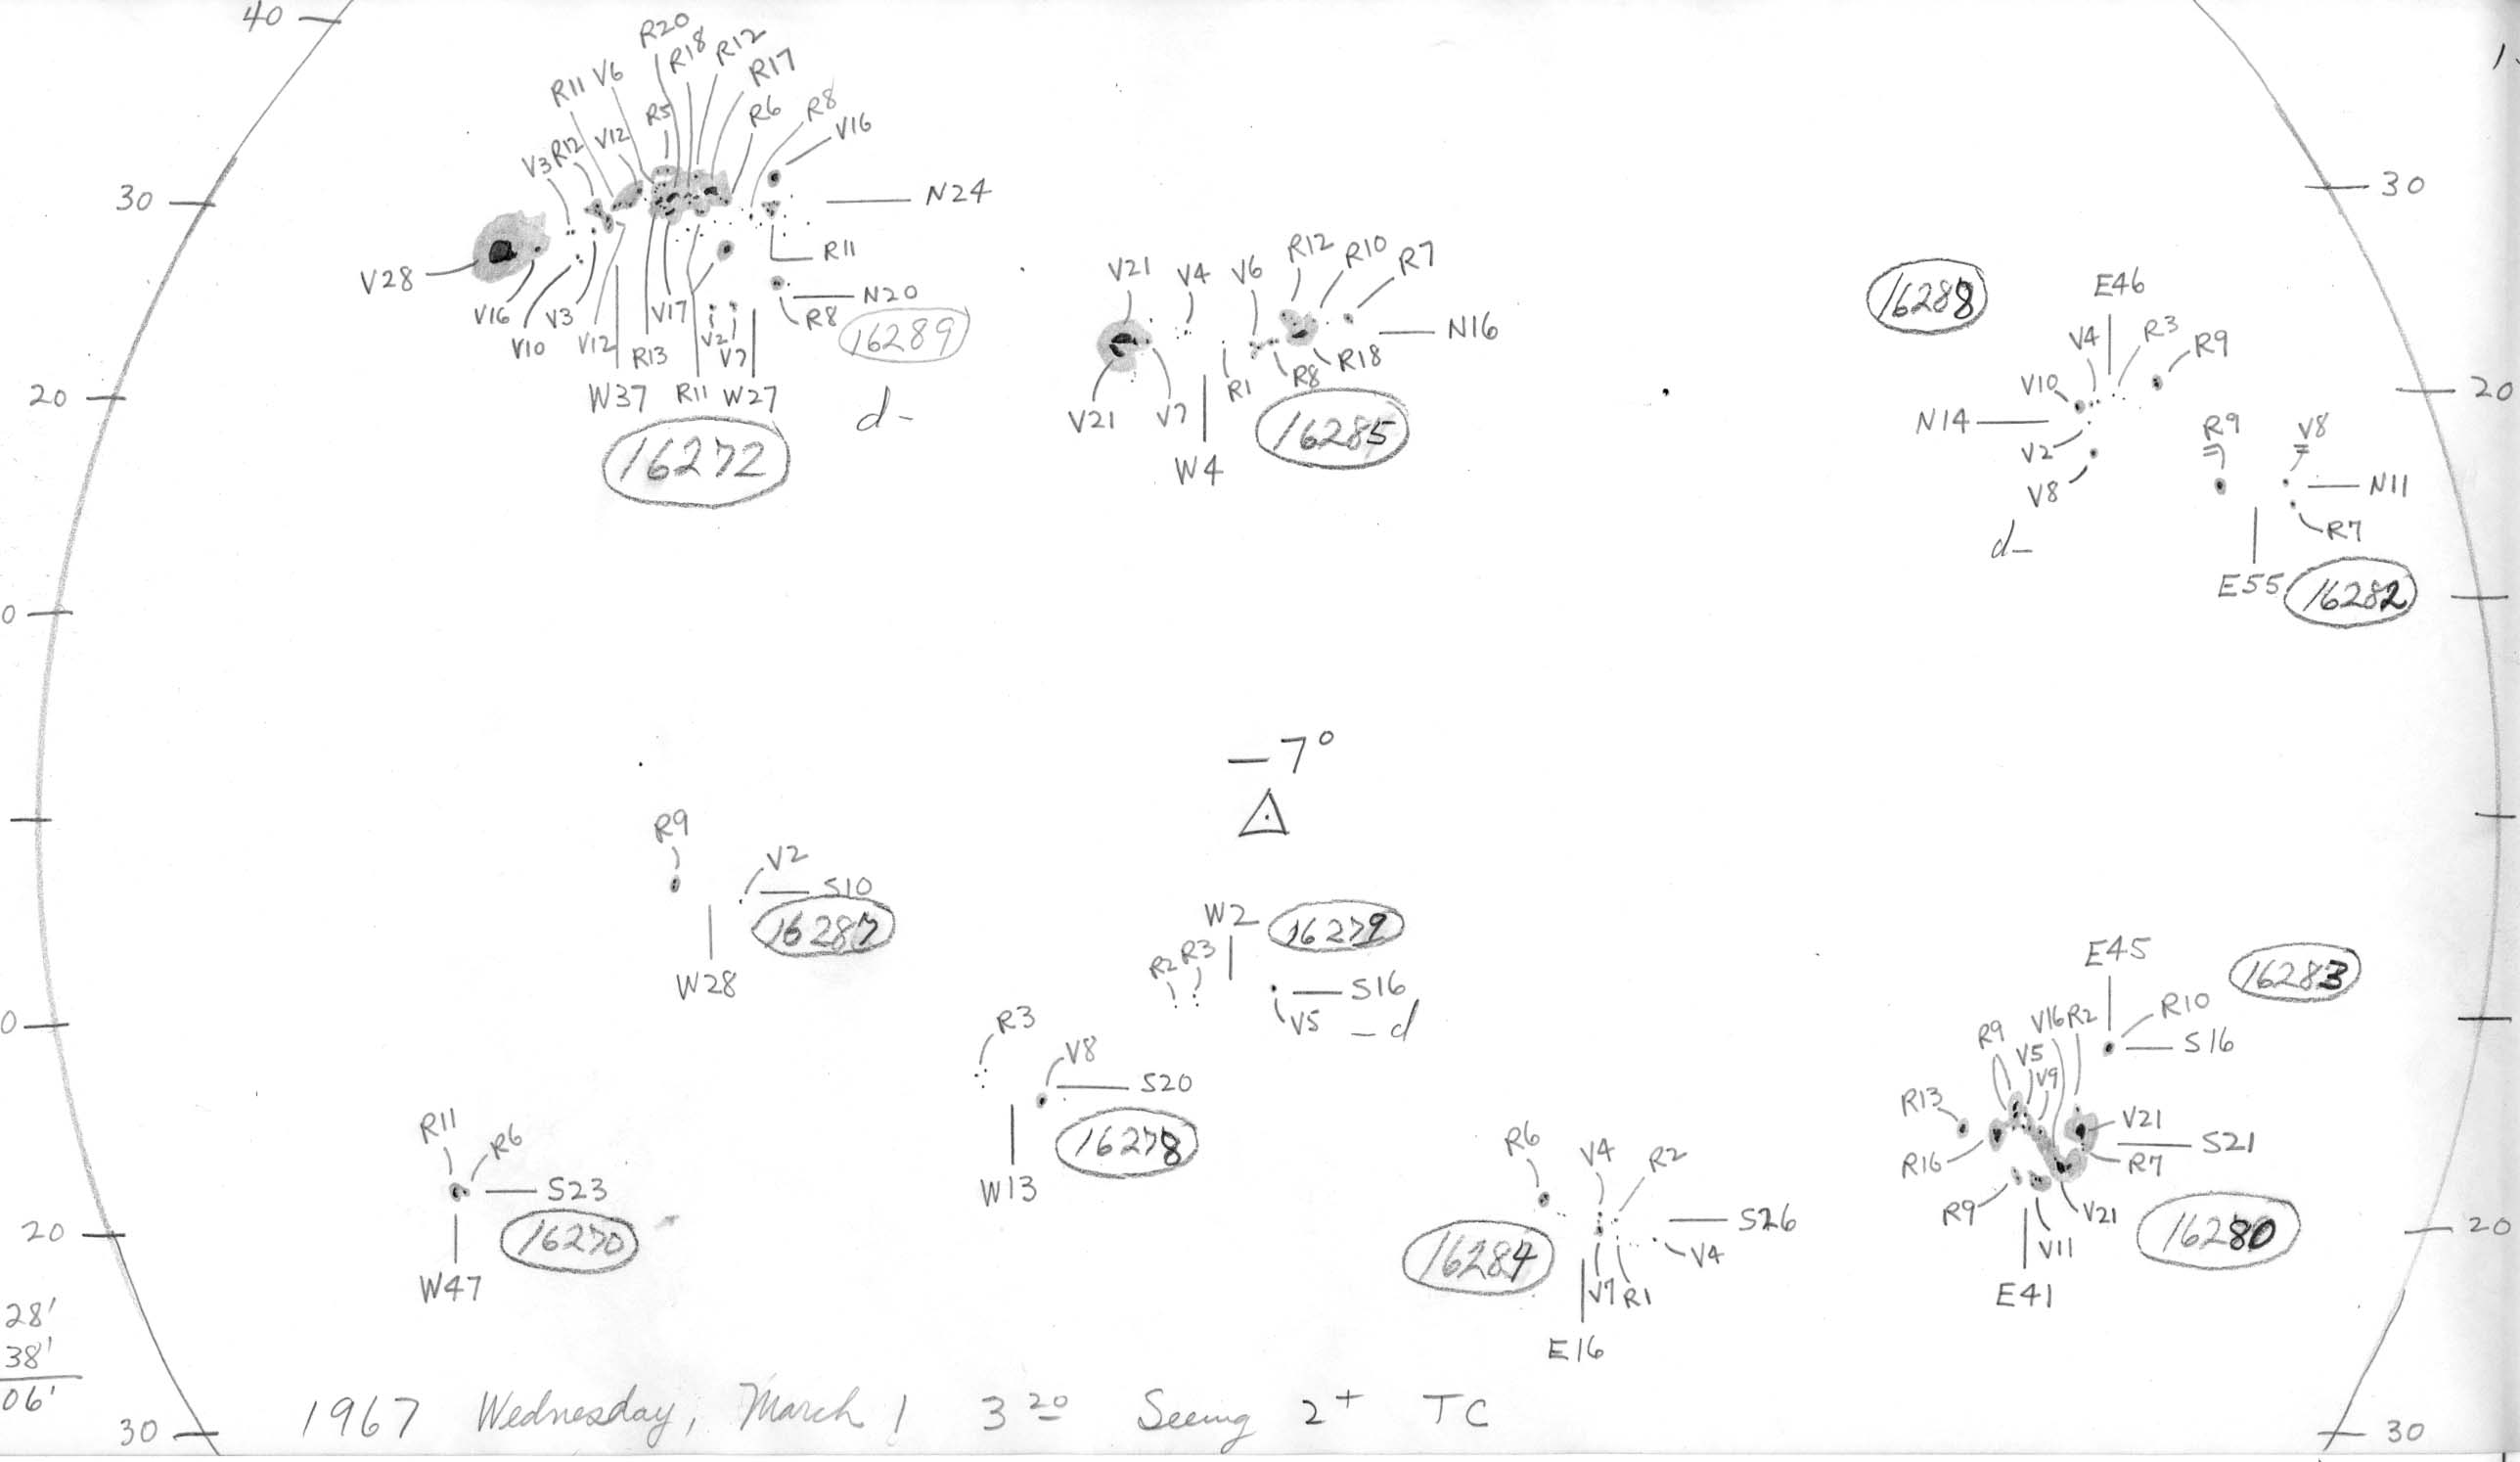 40
R20
R18
R12
R17
R11 V6
R5
R6
R8
V16
V3
R12
V12
30
N24
V28
R11
V16
V10
V3
V12
R13
V17
V2
V7
N20
R8
16289
20
W37
R11
W27
d-
16272
V21
V4
V6
R12
R10
R7
N16
V21
V7
R1
R8
R18
W4
16285
30
16288
E46
V4
R3
R9
V10
N14
V2
V8
d-
20
R9
V8
N11
R7
E55
16282
0
-7°
R9
V2
S10
16287
W28
W2
16279
R2
R3
S16
V5
-d
0
R3
V8
S20
16278
W13
E45
16283
R10
S16
R9
V16
R2
V5
V9
R13
V21
S21
R16
R7
R9
V11
V21
16280
E41
R11
R6
S23
16270
W47
20
R6
V4
R2
S26
V4
16284
V7
R1
E16
20
28'
38'
06'
30
30
1967 Wednesday, March 1 3 20 Seeing 2+ TC